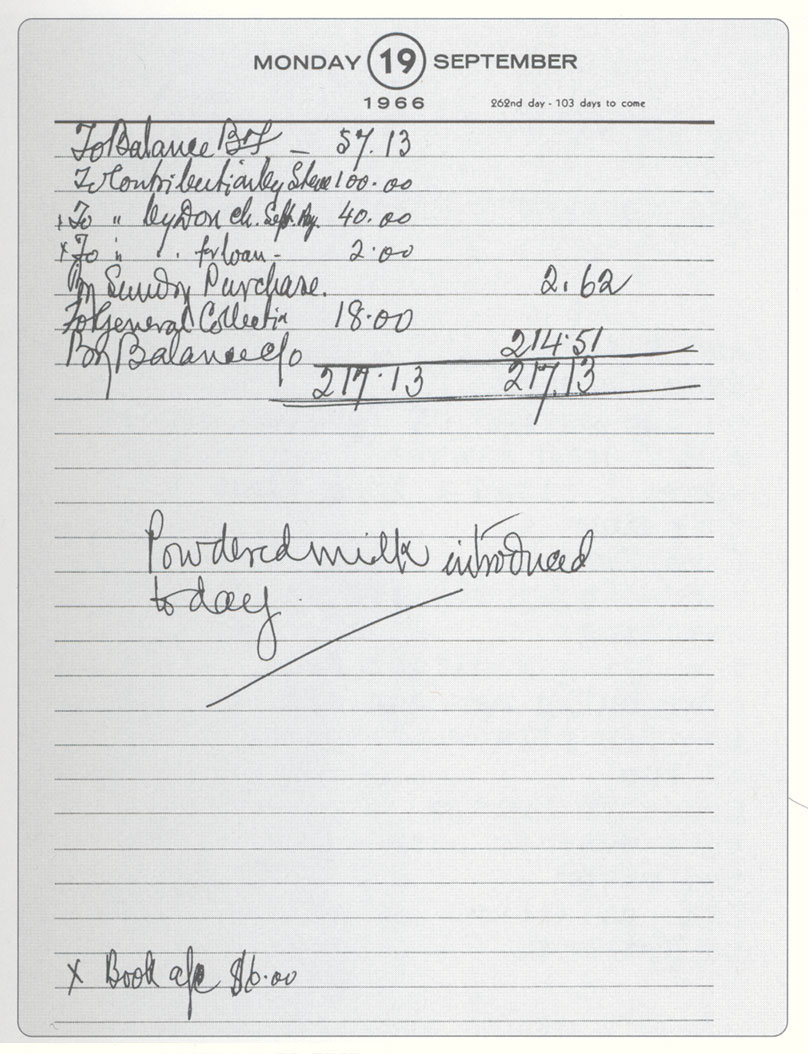 MONDAY 19 SEPTEMBER
1966 262nd day - 103 days to come
To Balance B/f — 57.13
To Contribution by Steve 100.00
x To " by Don ch. Sept. 40.00
x To " " for loan - 2.00
By Sundry Purchase. 2.62
To General Collectin 18.00
By Balance c/o 214.51
217.13 217.13
Powdered milk introduced
today
x Book a/c $6.00